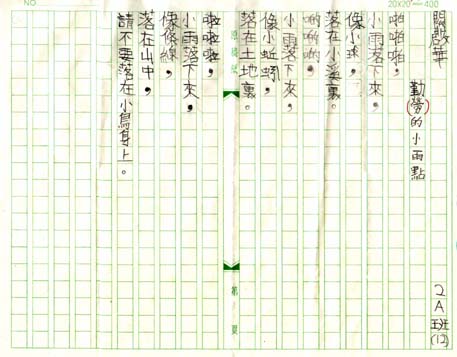 NO
20×20＝400
關啟華 2A班(12)
勤勞的小雨點
啪啪啪，
小雨落下來，
像小球，
落在小溪裏。
啲啲啲，
小雨落下來，
像小蚯蚓，
落在土地裏。
原稿紙
第 頁
啦啦啦，
小雨落下來，
像條線，
落在山中，
請不要落在小鳥身上。